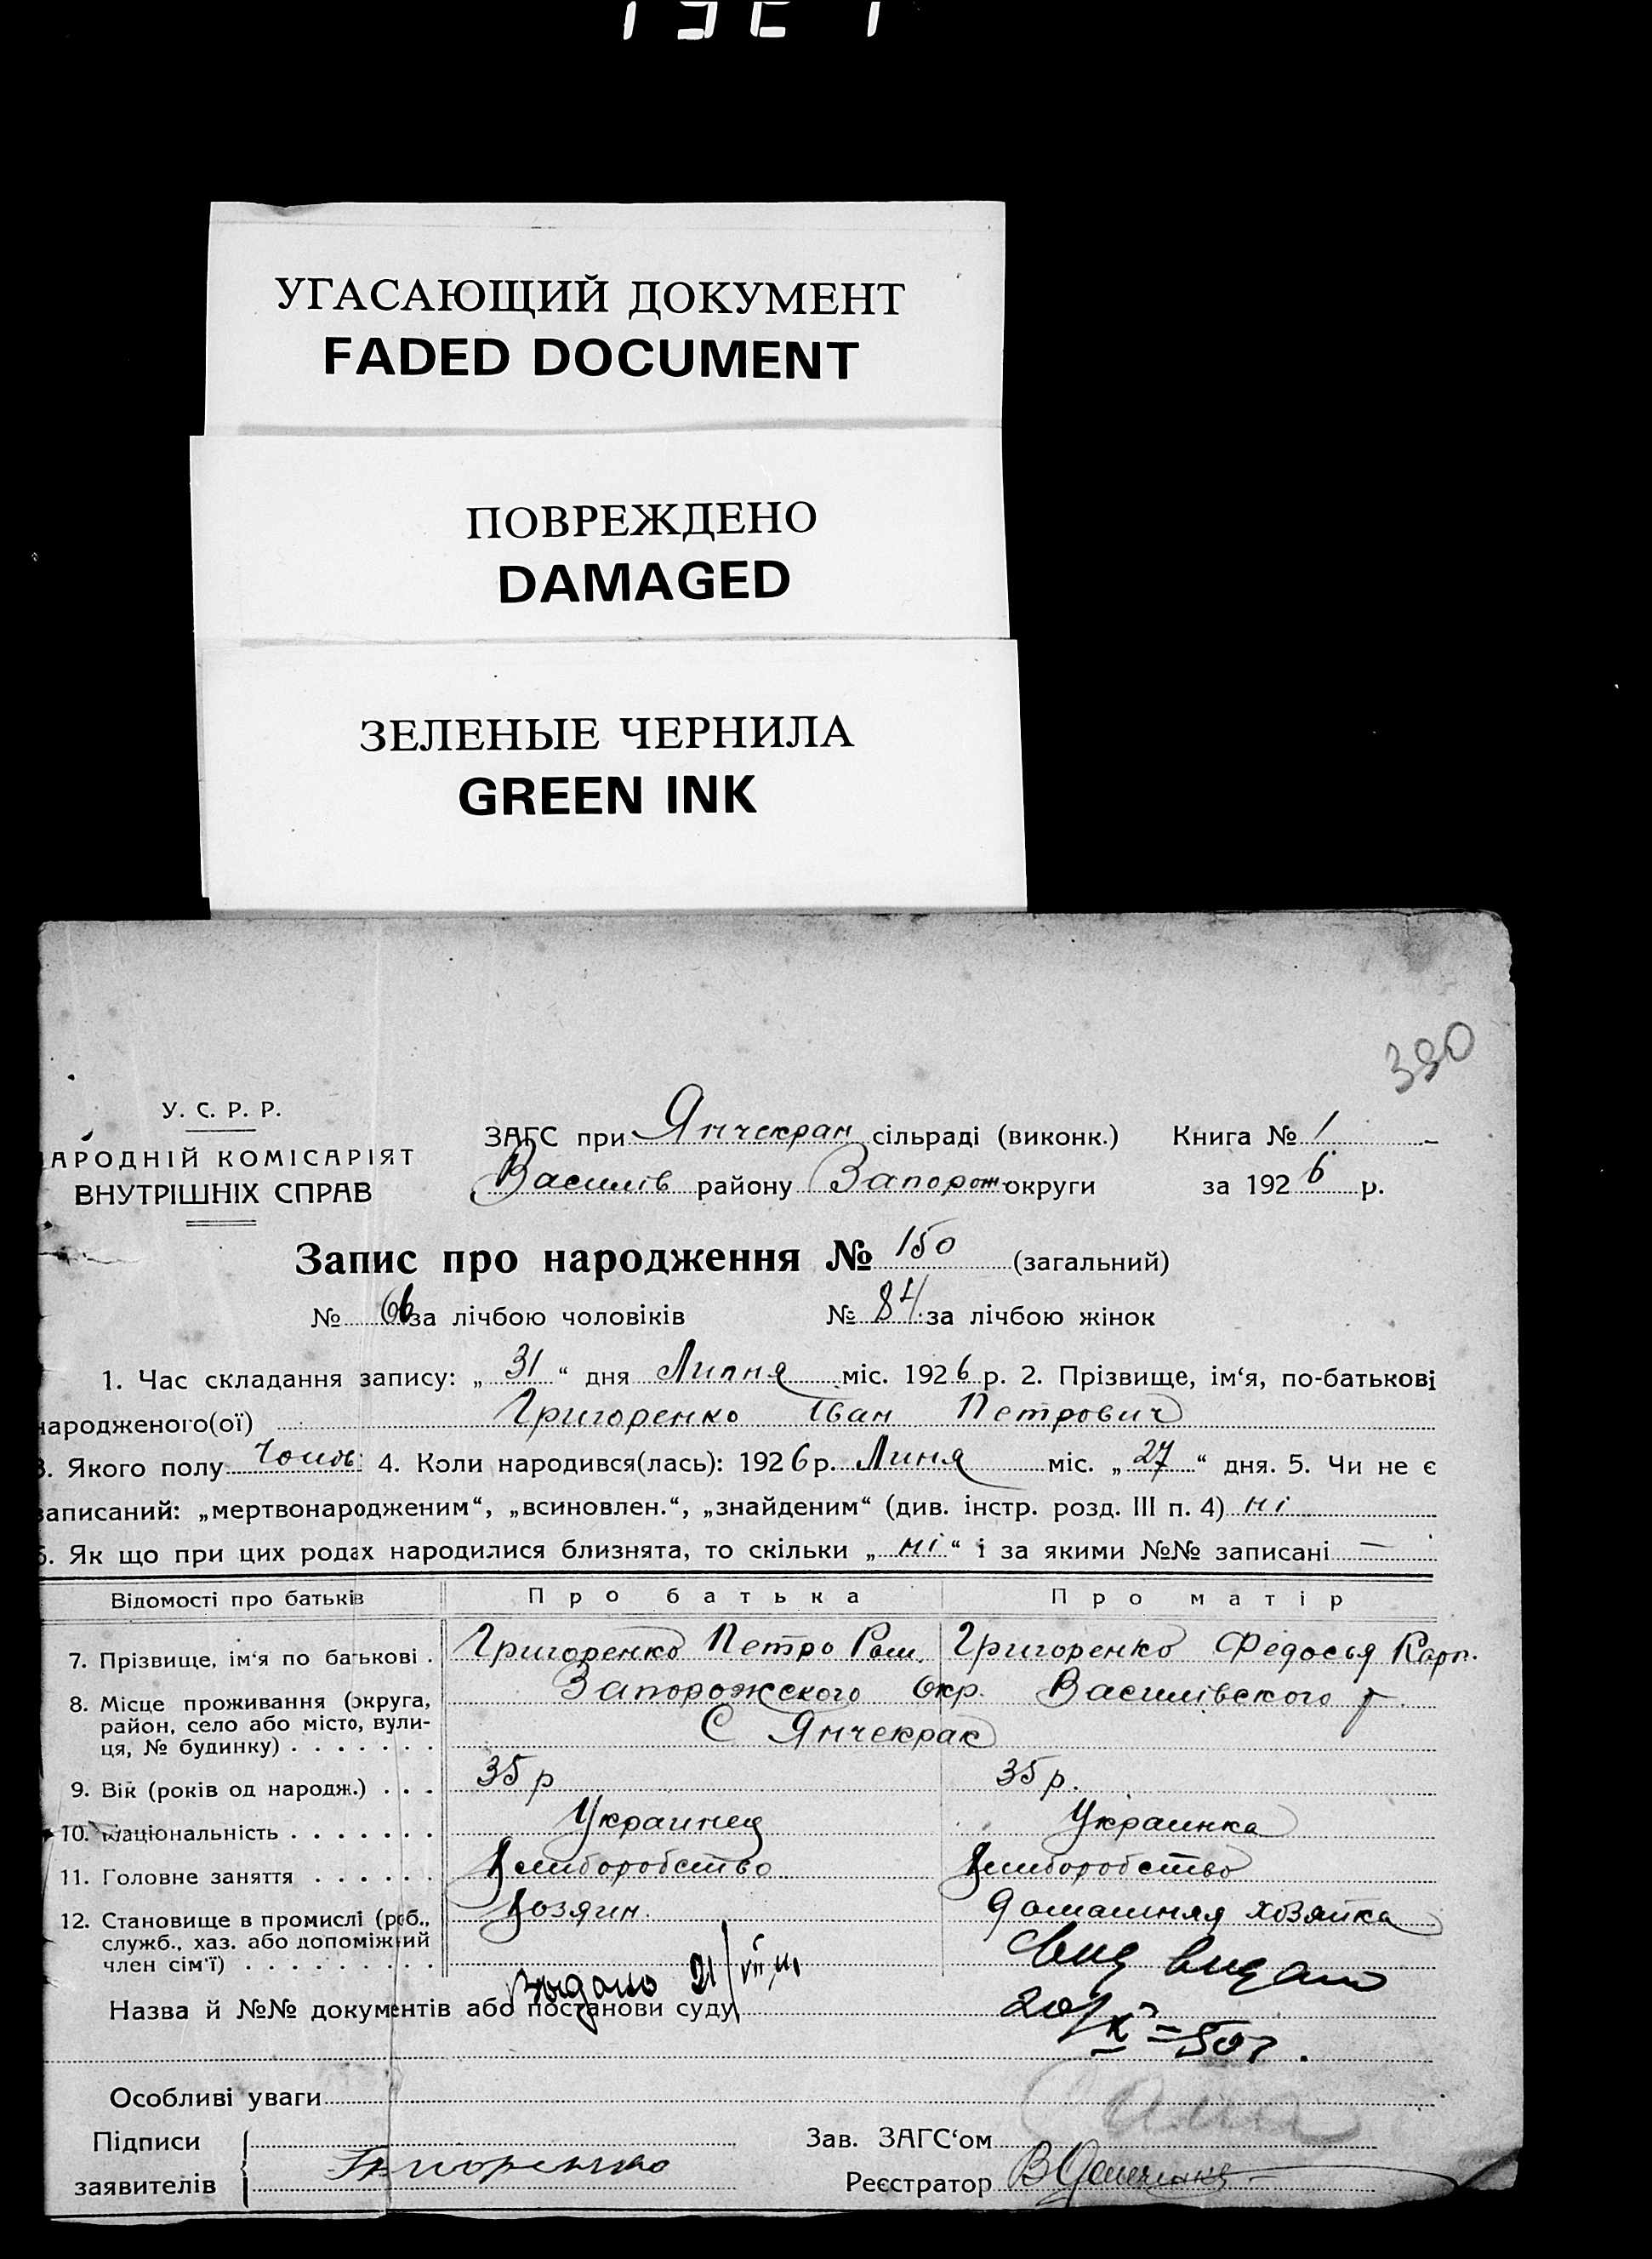 УГАСАЮЩИЙ ДОКУМЕНТ
FADED DOCUMENT
ПОВРЕЖДЕНО
DAMAGED
ЗЕЛЕНЫЕ ЧЕРНИЛА
GREEN INK
390
У. С. Р. Р.
АРОДНІЙ КОМІСАРІЯТ
ВНУТРІШНІХ СПРАВ
ЗАГС при Янчекрак сільраді (виконк.) Книга № 1
Василів району Запорож округи за 1926 р.
Запис про народження № 150 (загальний)
№ 66 за лічбою чоловіків № 84 за лічбою жінок
1. Час складання запису: „31“ дня Липня міс. 1926 р. 2. Прізвище, ім‘я, по-батькові
народженого(ої) Григоренко Іван Петрович
3. Якого полу 4. Коли народився(лась): 1926 р. Липя міс. „27“ дня. 5. Чи не є
записаний: „мертвонародженим“, „всиновлен.“, „знайденим“ (див. інстр. розд. III п. 4) ні
6. Як що при цих родах народилися близнята, то скільки „ні“ і за якими №№ записані —
Відомості про батьків Про батька Про матір
7. Прізвище, ім‘я по батькові . Григоренко Петро Ром. Григоренко Федосья Карп.
8. Місце проживання (округа, Запорожского Окр. Василівского р.
район, село або місто, вули- С Янчекрак
ця, № будинку) . . . . . . .
9. Вік (років од народж.) . . . 35 р 35 р.
10. Національність . . . . . . . Украинец Украинка
11. Головне заняття . . . . . . Хлиборобство Хлиборобство
12. Становище в промислі (роб., Хозяин. домашняя хозяйка
служб., хаз. або допоміжний
член сім‘ї) . . . . . . . . .
Выдано 21/VII
Назва й №№ документів або постанови суду
20/X – 50 г.
Особливі уваги
Підписи Зав. ЗАГС‘ом
заявителів Григоренко Реєстратор